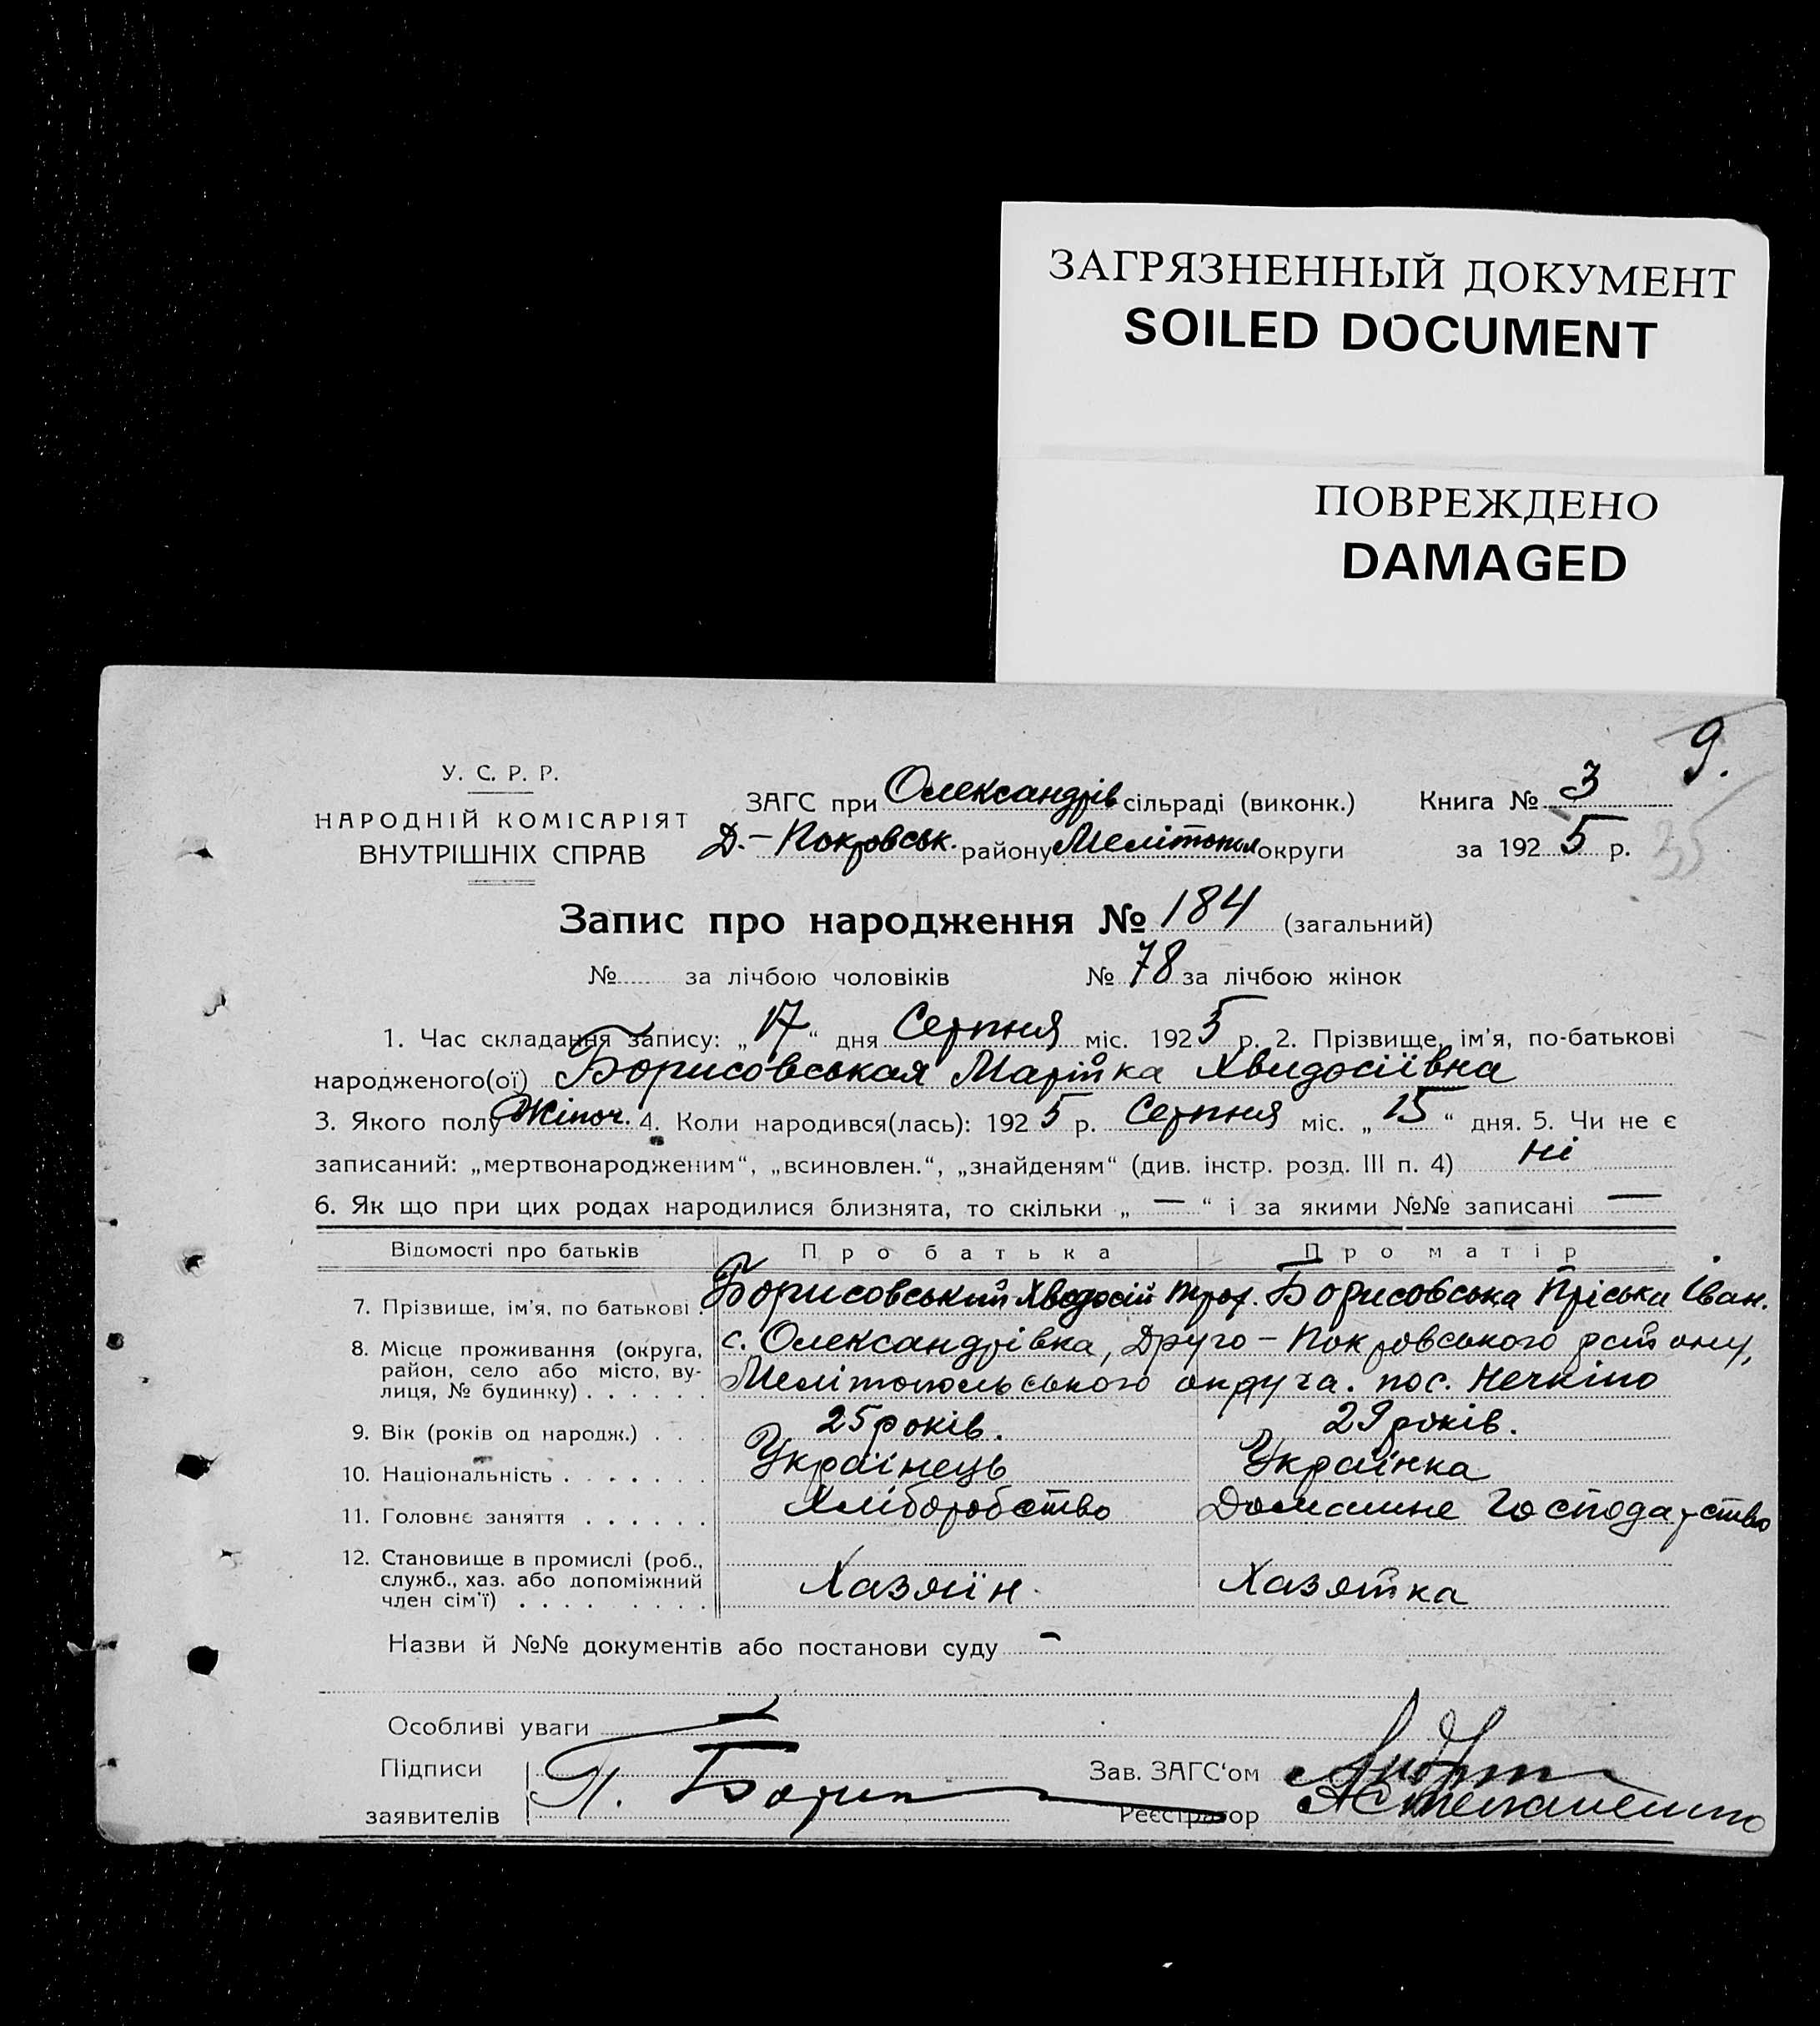 ЗАГРЯЗНЕННЫЙ ДОКУМЕНТ
SOILED DOCUMENT
ПОВРЕЖДЕНО
DAMAGED
9.
У. С. Р. Р.
НАРОДНІЙ КОМІСАРІЯТ
ВНУТРІШНІХ СПРАВ
ЗАГС при Олександрів сільраді (виконк.) Книга № 3
Д.-Покровськ. району Мелітопол округи за 1925 р. 35
Запис про народження № 184 (загальний)
№ за лічбою чоловіків № 78 за лічбою жінок
1. Час складання запису: „17“ дня Серпня міс. 1925 р. 2. Прізвище, ім'я, по-батькові
народженого(ої) Борисовськая Марійка Хвидосіївна
3. Якого полу Жіноч. 4. Коли народився(лась): 1925 р. Серпня міс. „15“ дня. 5. Чи не є
записаний: „мертвонародженим“, „всиновлен.“, „знайденям“ (див. інстр. розд. III п. 4) Ні
6. Як що при цих родах народилися близнята, то скільки „—“ і за якими №№ записані —
Відомості про батьків Про батька Про матір
7. Прізвище, ім'я, по батькові . Борисовський Хведосій Борисовська Пріська Іван.
8. Місце проживання (округа, с. Олександрівка, Друго-Покровського району,
район, село або місто, ву-
лиця, № будинку) . . . . . . Мелітопольського округа. пос.
9. Вік (років од народж.) . . . 25 років. 29 років.
10. Національність . . . . . . . Українець Українка
11. Головнє заняття . . . . . . Хліборобство Домашне Господарство
12. Становище в промислі (роб.,
служб., хаз. або допоміжний Хазяїн. Хазяйка
член сім'ї) . . . . . . . . .
Назви й №№ документів або постанови суду -
Особливі уваги
Підписи Зав. ЗАГС'ом
заявителів Реєстратор